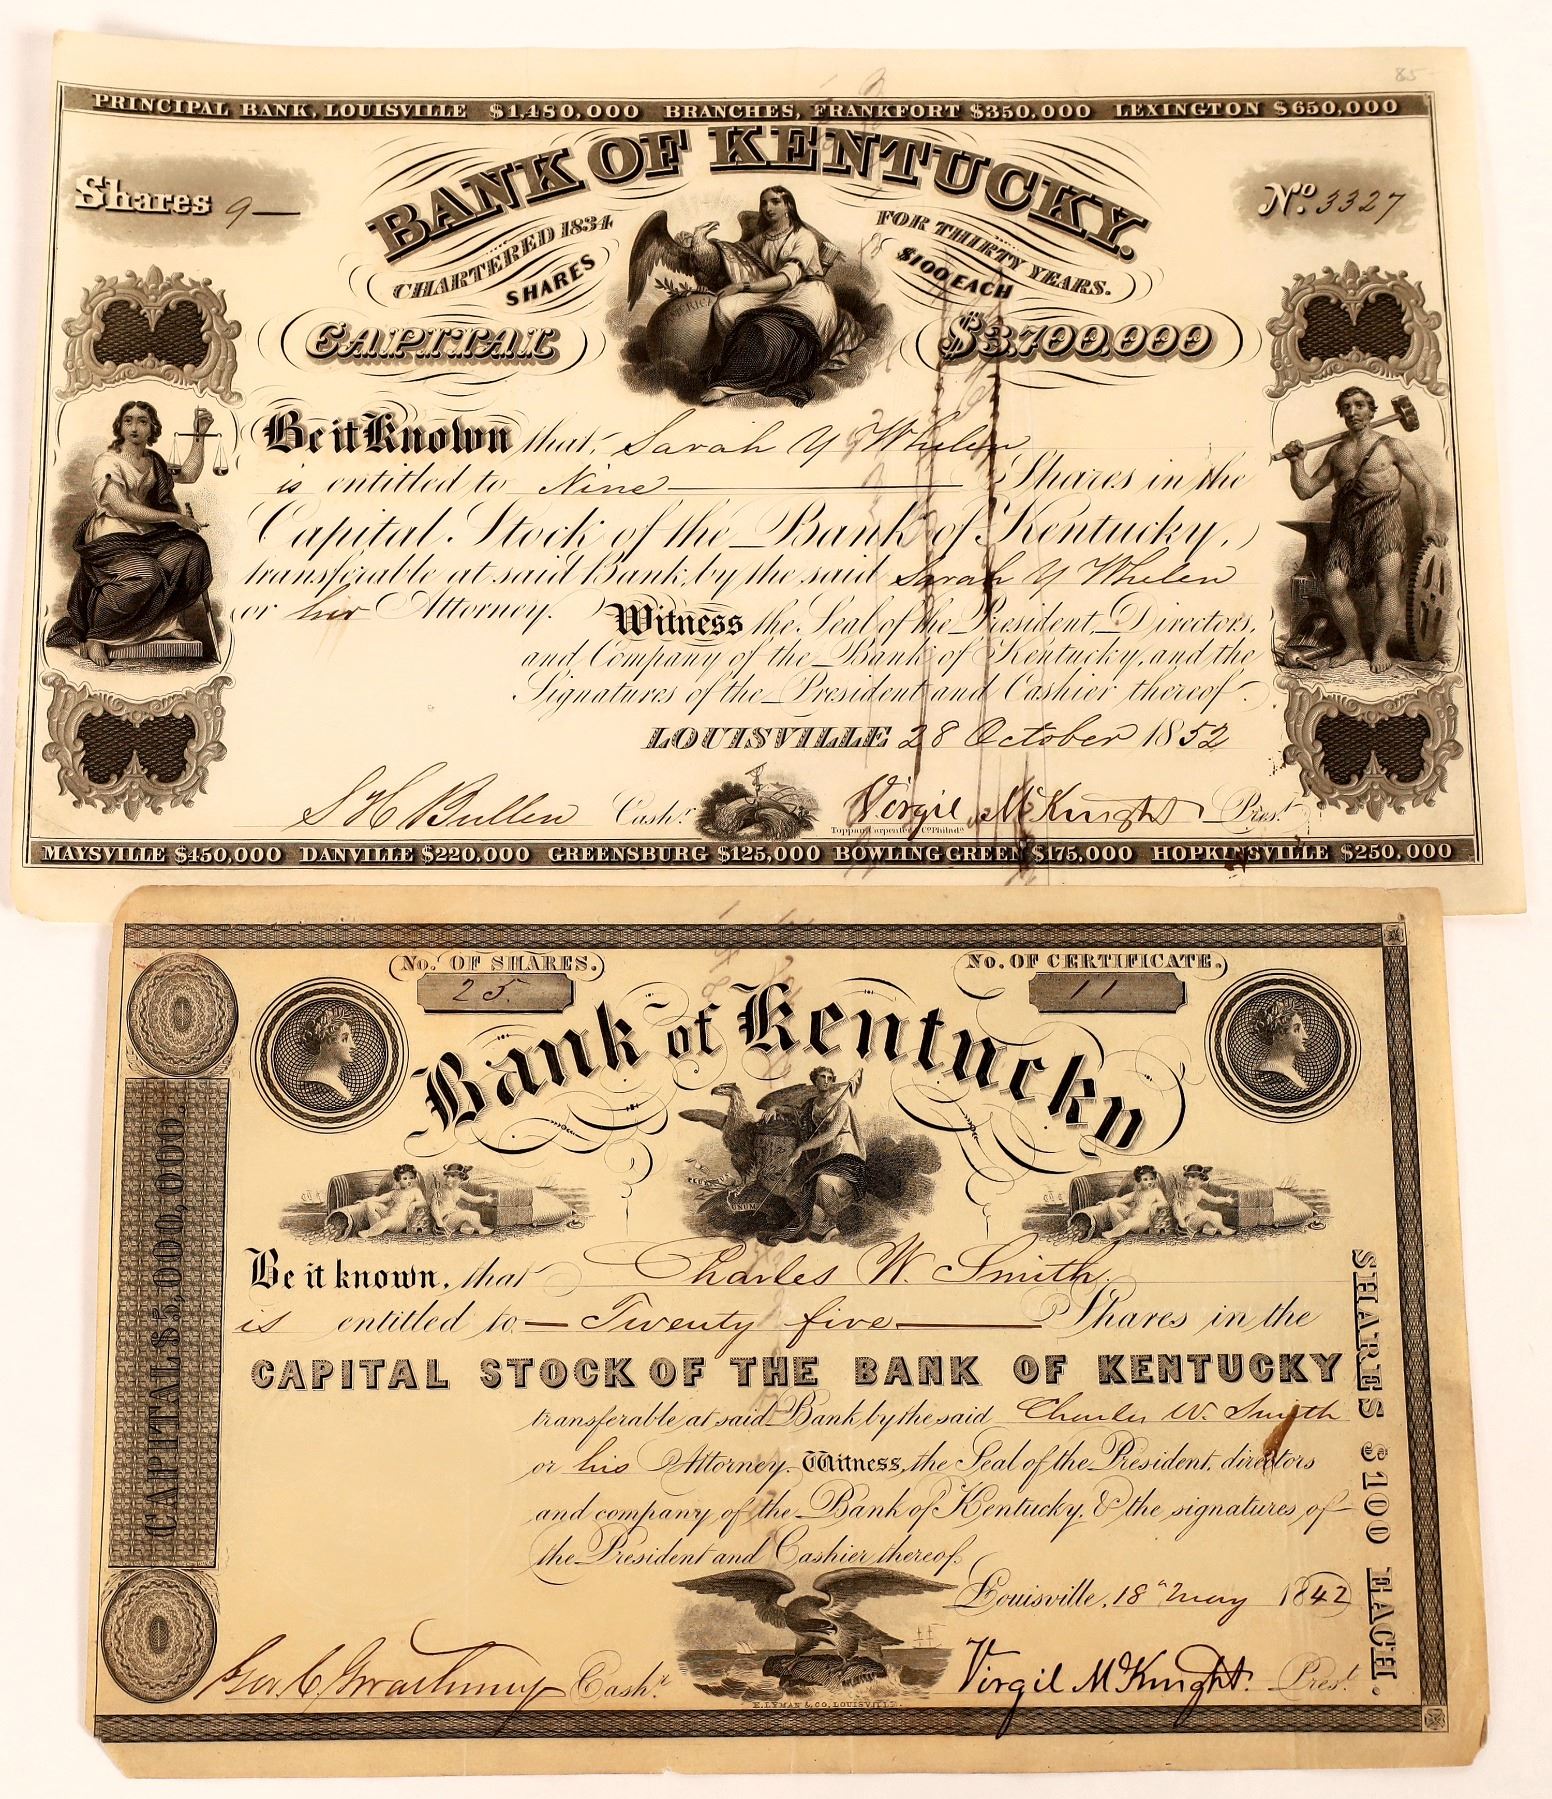 85
PRINCIPAL BANK, LOUISVILLE $1,480,000 BRANCHES, FRANKFORT $350,000 LEXINGTON $650,000
BANK OF KENTUCKY.
Shares 9
No. 3327
CHARTERED 1834
FOR THIRTY YEARS.
SHARES
$100 EACH
CAPITAL
$3,700,000
AMERICA
Be it Known that, Sarah Y Whelen
is entitled to Nine Shares in the
Capital Stock of the Bank of Kentucky,
transferable at said Bank, by the said Sarah Y Whelen
or her Attorney. Witness the Seal of the President, Directors,
and Company of the Bank of Kentucky, and the
Signatures of the President and Cashier thereof.
LOUISVILLE 28 October 1852
S H Bullen Cashr. Virgil McKnight Prest.
Toppan, Carpenter & Co. Philada.
MAYSVILLE $450,000 DANVILLE $220,000 GREENSBURG $125,000 BOWLING GREEN $175,000 HOPKINSVILLE $250,000
No. OF SHARES.
No. OF CERTIFICATE.
25.
11
Bank of Kentucky
CAPITAL $5,000,000.
UNUM
Be it known, that Charles W. Smith.
is entitled to Twenty five Shares in the
CAPITAL STOCK OF THE BANK OF KENTUCKY
transferable at said Bank by the said Charles W. Smith
or his Attorney. Witness, the Seal of the President, directors
and company of the Bank of Kentucky, & the signatures of
the President and Cashier thereof.
Louisville, 18th May 1842
SHARES $100 EACH.
Geo C Gwathmey Cashr. Virgil McKnight. Prest.
E. LYMAN & CO. LOUISVILLE.